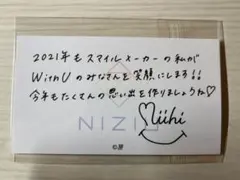 2021年もスマイルメーカーの私が
WithUのみなさんを笑顔にしまう!!
今年もたくさんの思い出を作りましょうね♡
Miihi
NIZI